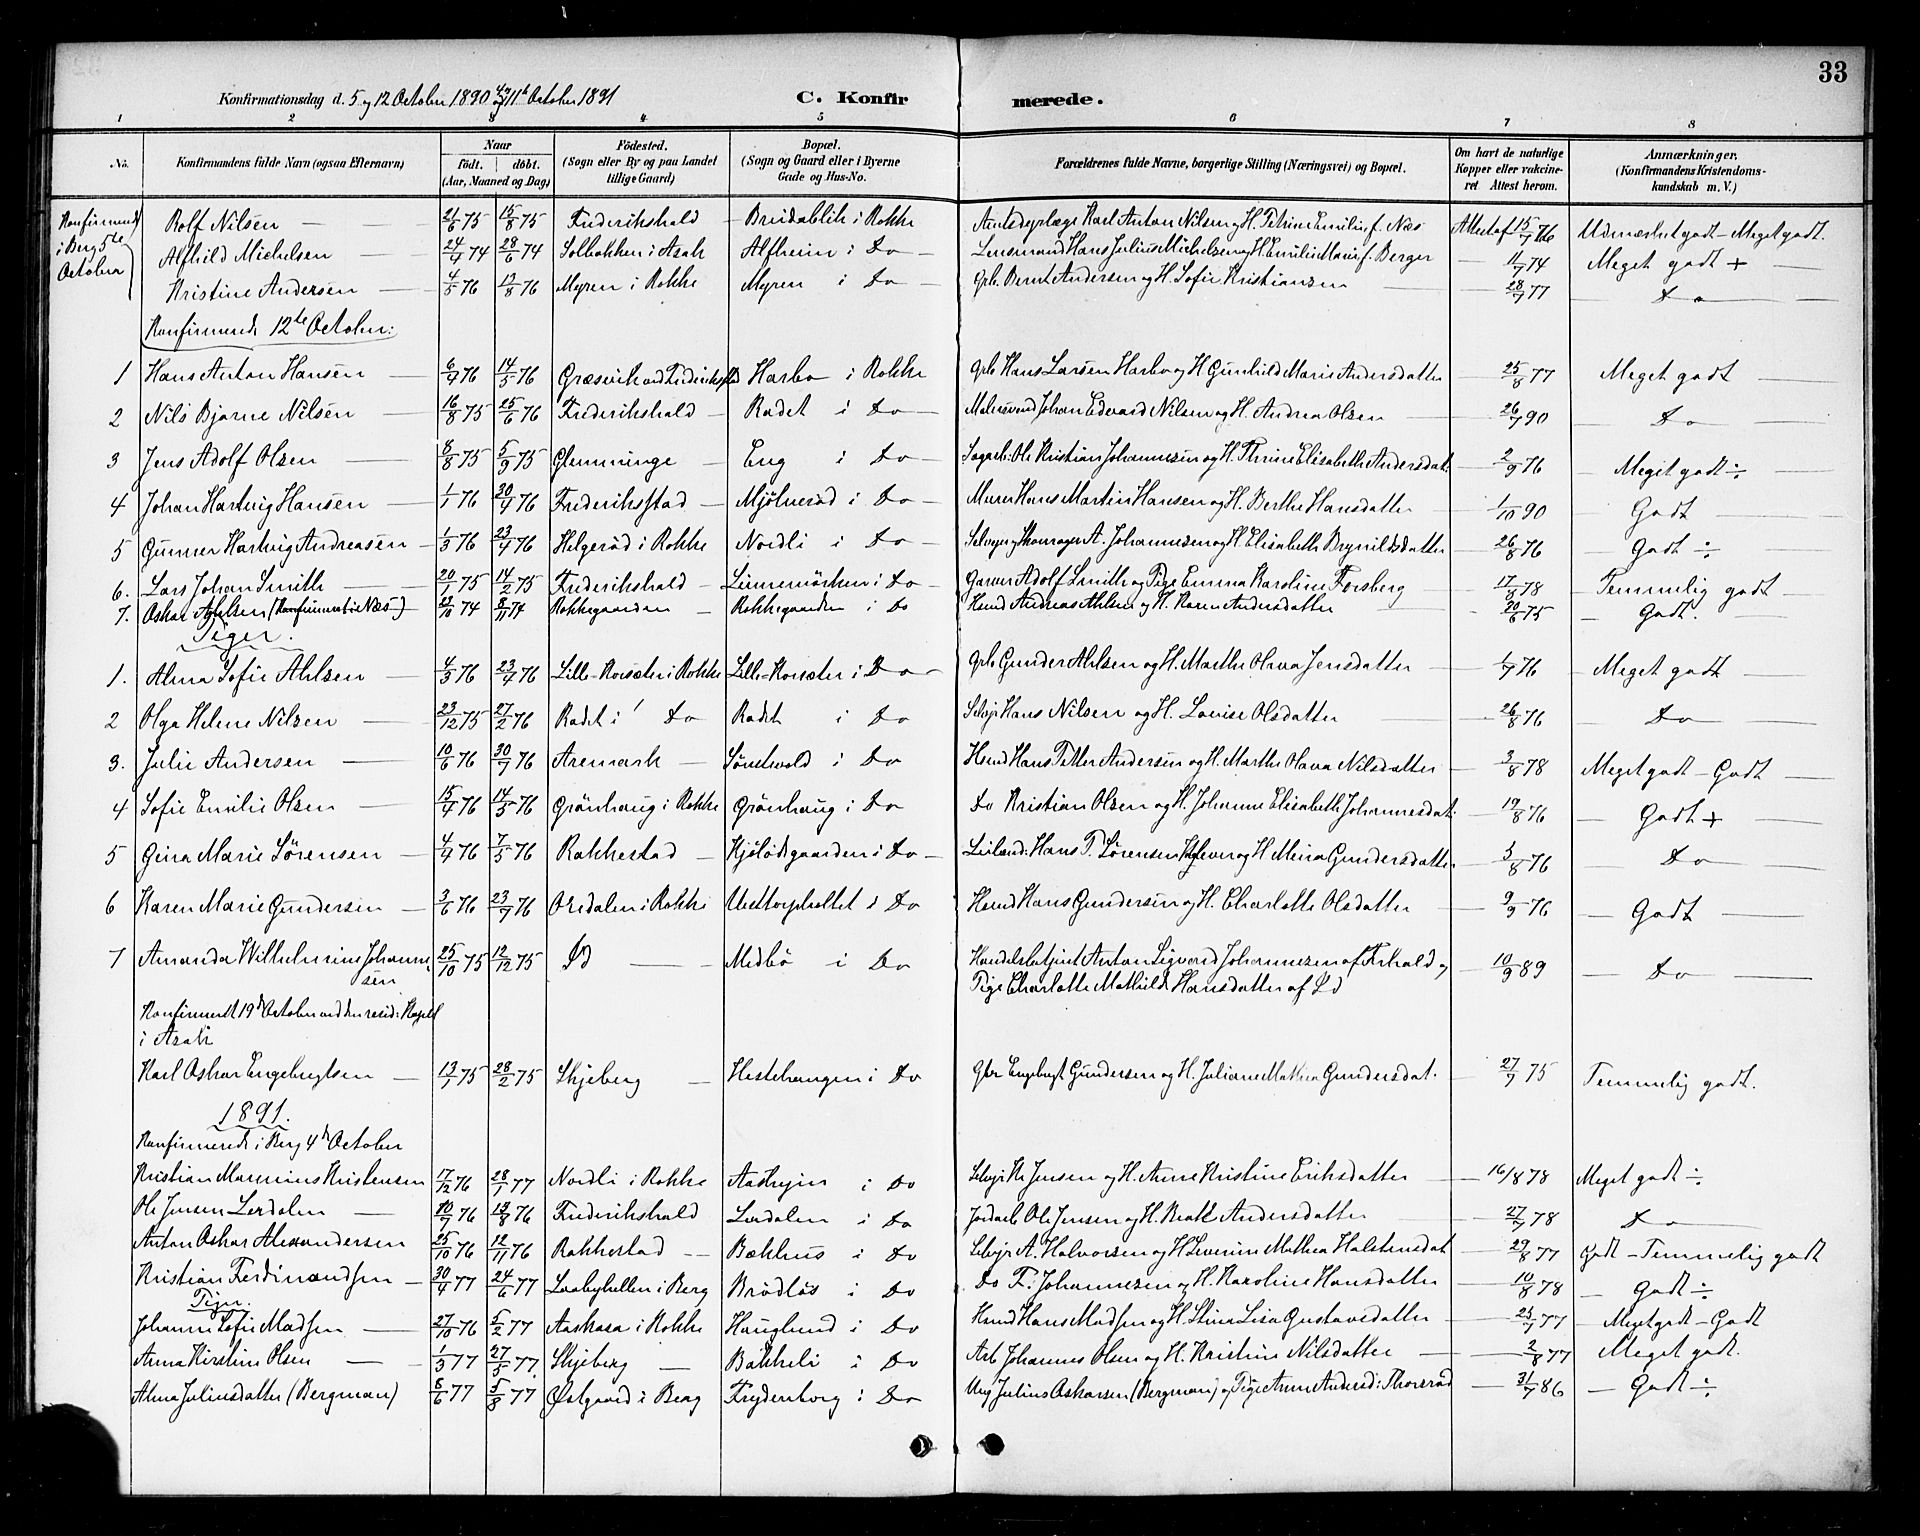 33
Konfirmationsdag d. 5 og 12 October 1890 4de og 11te October 1891
C. Konfirmerede.
1 2 3 4 5 6 7 8
No. Konfirmandens fulde Navn (ogsaa Efternavn) Naar födt. döbt. (Aar, Maaned og Dag) Födested. (Sogn eller By og paa Landet tillige Gaard) Bopæl. (Sogn og Gaard eller i Byerne Gade og Hus-No. Forældrenes fulde Navne, borgerlige Stilling (Næringsvei) og Bopæl. Om havt de naturlige Kopper eller vakcineret Attest herom. Anmærkninger. (Konfirmandens Kristendomskundskab m. V.)
Konfirmend i Berg 5te October
Rolf Nilsen — 21/6 75 15/8 75 Frederikshald — Breidablik i Rokke Karl Anton Nilsen og H. Petrine Emilie f. Næs Attest af 15/7 76 Udmærket godt - Meget godt.
Alfhild Michelsen — 24/4 74 28/6 74 Solbakken i Asak Alfheim i Do — Lensmand Hans Julius Michelsen og H. Emilie Marie f. Berger — 11/7 74 Meget godt +
Kristine Andersen — 4/5 76 13/8 76 Myren i Rokke Myren i Do — Grb. Bernt Andersen og H. Sofie Kristiansen — 28/7 77 — Do —
Konfirmerede 12te October:
1 Hans Anton Hansen — 6/4 76 14/5 76 Græsvik ved Frederiksstad Harbo i Rokke Grb Hans Larsen Harbo og H Gunhild Marie Andersdatter — 25/8 77 Meget godt
2 Nils Bjarne Nilsen — 16/8 75 25/6 76 Frederikshald — Rødet i Do — Malersvend Johan Edvard Nilsen og H. Andrea Olsen — 26/7 90 Do
3 Jens Adolf Olsen — 8/8 75 5/9 75 Glemminge — Eng i Do — Sagarb. Ole Kristian Johannesen og H. Thrine Elisabeth Andersdat. — 2/9 76 — Meget godt ÷
4 Johan Hartvig Hansen — 1/1 76 30/4 76 Frederiksstad — Mjölneröd i Do — Murer Hans Martin Hansen og H. Berthe Hansdatter — 1/10 90 — Godt
5 Gunner Hartvig Andreasen — 1/3 76 23/4 76 Helgeröd i Rokke Nordli i Do — Selveier og Skomager A. Johannesen og H. Elisabeth Brynildsdatter — 26/8 76 — Godt ÷
6. Lars Johan Smith — 20/1 75 14/2 75 Frederikshald — Linnemörken i Do — Garver Adolf Smith og Pige Emma Karoline Forsberg — 17/8 78 — Temmelig godt —
7. Oskar Ahlsen (Konfirmert i Næs) 23/10 74 8/11 74 Rokkegaarden — Rokkegaarden i Do Husmd Andreas Ahlsen og H. Karen Andersdatter — 20/6 75 — Godt.
Piger.
1. Alma Sofie Ahlsen — 4/3 76 23/4 76 Lille-Korsæter i Rokke Lille-Korsæter i Do — Grb Gunder Ahlsen og H. Marthe Olava Jensdatter — 1/7 76 — Meget godt
2 Olga Helene Nilsen — 23/12 75 27/2 76 Rødet i Do Rødet i Do Selvejer Hans Nilsen og H. Lovise Olsdatter — 26/8 76 — Do
3. Julie Andersen — 10/6 76 30/7 76 Aremark — Sönstevold i Do Husmd Hans Petter Andersen og H. Marthe Olava Nilsdatter — 3/8 78 Meget godt - Godt
4 Sofie Emilie Olsen — 15/4 76 14/5 76 Grönhaug i Rokke Grönhaug i Do Do Kristian Olsen og H. Johanne Elisabeth Johannesdat. — 19/8 76 — Godt +
5 Gina Marie Sörensen — 4/4 76 7/5 76 Rakkestad — i Do — Leilænd: Hans P. Sörensen og H Meina Gundersdatter — 5/8 76 — Do
6 Karen Marie Gundersen — 3/6 76 23/7 76 i Rokke i Do Husmd Hans Gundersen og H. Charlotte Olsdatter — 9/9 76 — Godt
7 Amanda Wilhelmine Johannesen 25/10 75 12/12 75 Id — Medbö i Do Handelsbetjent Anton Sigvard Johannesen af Frhald og — 10/9 89 — Do
Pige Charlotte Mathilde Hansdatter af Id
Konfirmert 19de October ved den resid: Kapell
i Asak
Karl Oskar Engebrigtsen — 13/1 75 28/2 75 Skjeberg — Hestehaugen i Do Gbr Engebrigt Gundersen og H. Juliane Mathea Gundersdat. — 27/7 75 Temmelig godt.
1891.
Konfirmerede i Berg 4de October
Kristian Kristensen 17/12 76 28/1 77 Nordli i Rokke i Do Selvejr Kr Jensen og H. Anne Kristine Eriksdatter — 16/8 78 Meget godt ÷
Ole Jensen Lerdalen — 10/7 76 13/8 76 Frederikshald Lerdalen i Do Jordarb Ole Jensen og H. Beate Andersdatter — 27/7 78 Do
Anton Oskar Alexandersen 25/10 76 12/11 76 Rakkestad — Bækhus i Do Selvejr A. Halvorsen og H Severine Mathea Halstensdat — 29/8 77 Godt - Temmelig godt
Kristian Ferdinandsen — 30/4 77 24/6 77 i Berg Brödlös i Do Do F. Johannesen og H. Karoline Hansdatter — 10/8 78 — Godt ÷
Piger.
Johanne Sofie Madsen — 27/10 76 5/2 77 i Rokke Hauglund i Do Husmd Hans Madsen og H. Stina Lisa Gustavsdatter — 25/7 77 — Meget godt - Godt
Anna Kirstine Olsen — 1/3 77 27/5 77 Skjeberg — Bakkeli i Do Arb Johannes Olsen og H. Kristine Nilsdatter — 2/8 77 Meget godt.
Alma Juliusdatter (Bergman) 8/6 77 5/8 77 Østgaard i Berg Frydenborg i Do Ung Julius Oskarsen (Bergman) og Pige Anne Andersd: Thorsröd — 31/7 86 — Godt ÷